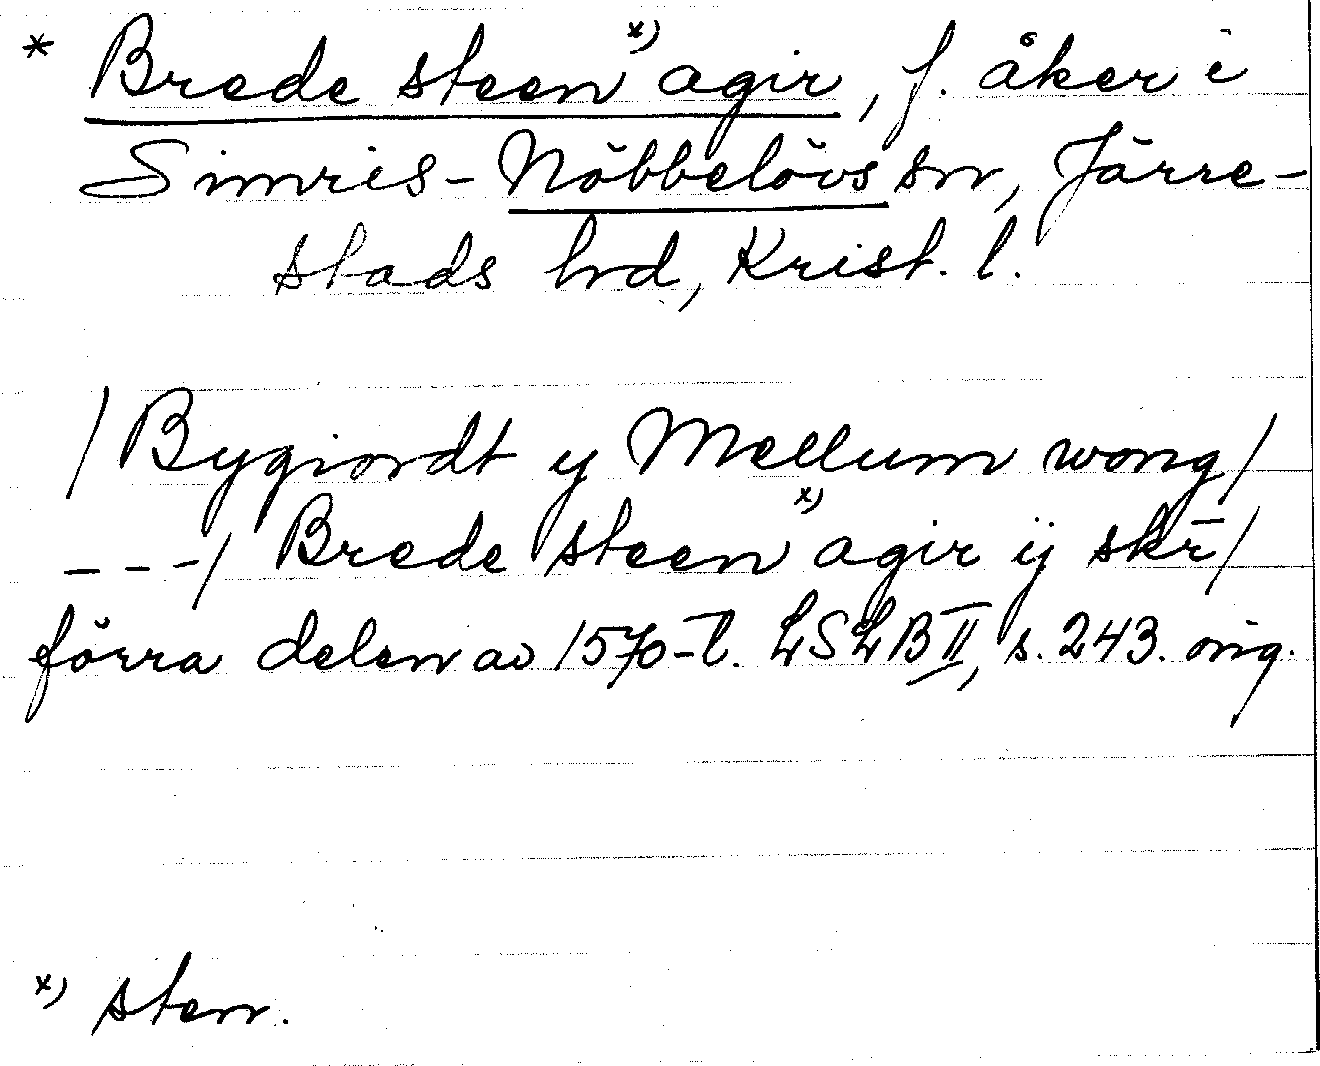 * Brede steen x) agir, f. åker i
Simris-Nöbbelövs sn, Järre-
stads hd, Krist. l.
/Bygiordt y Mellum wong/
---/ Brede steen x) agir ij skr̄/
förra delen av 1570-t. LSLB II, s. 243. orig.
x) sten.